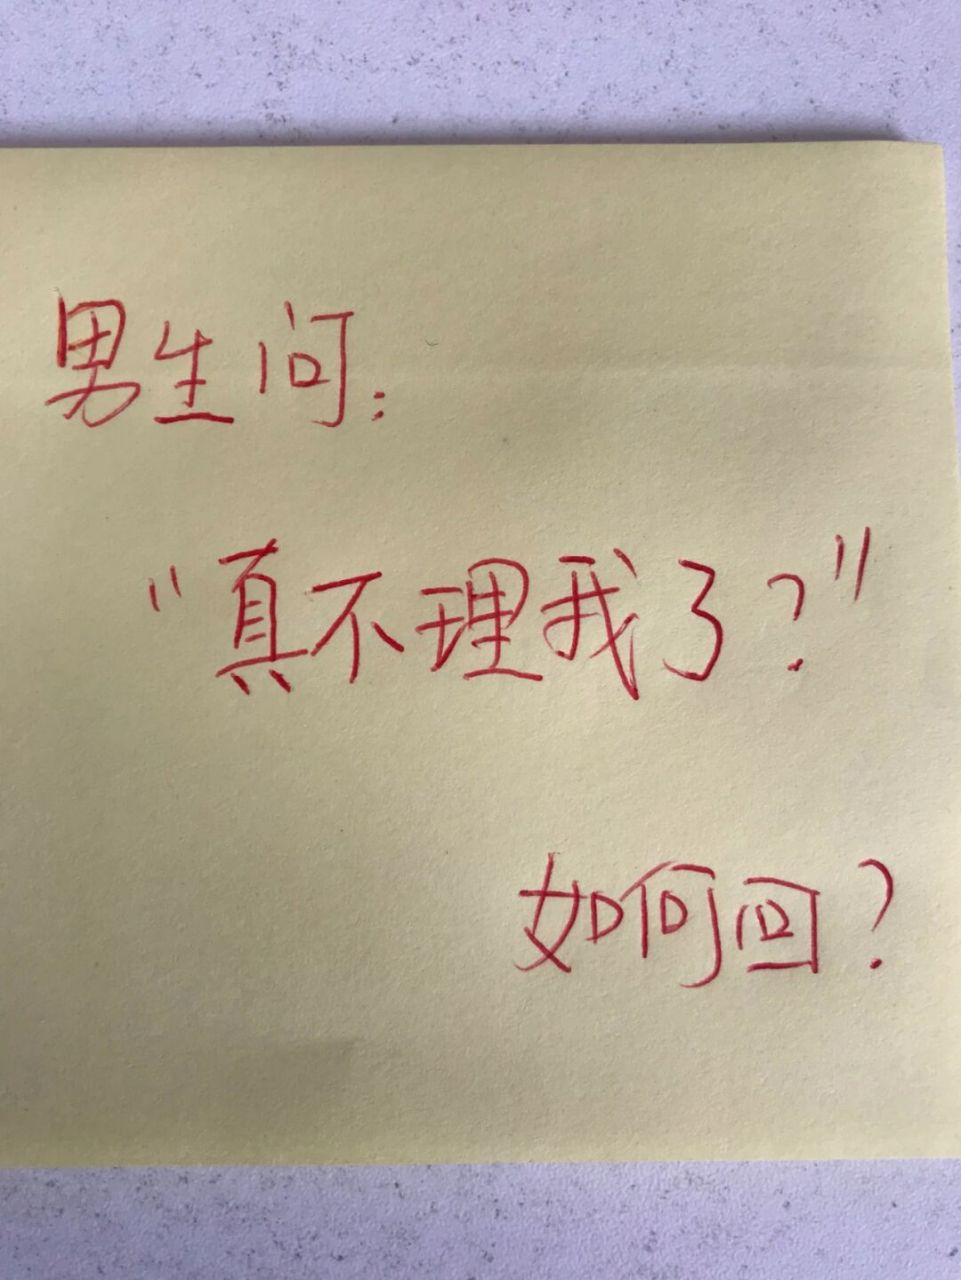 男生问:
"真不理我了?"
如何回?